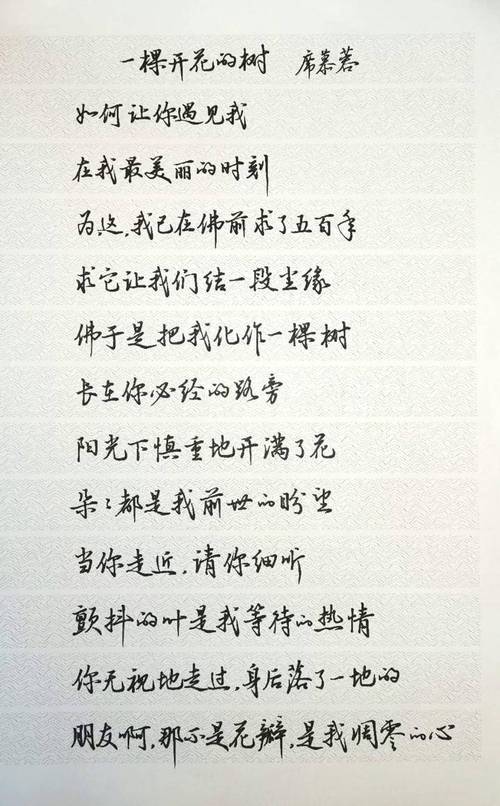 一棵开花的树 席慕蓉
如何让你遇见我
在我最美丽的时刻
为这,我已在佛前求了五百年
求它让我们结一段尘缘
佛于是把我化作一棵树
长在你必经的路旁
阳光下慎重地开满了花
朵々都是我前世的盼望
当你走近,请你细听
颤抖的叶是我等待的热情
你无视地走过,身后落了一地的
朋友啊,那不是花瓣,是我凋零的心